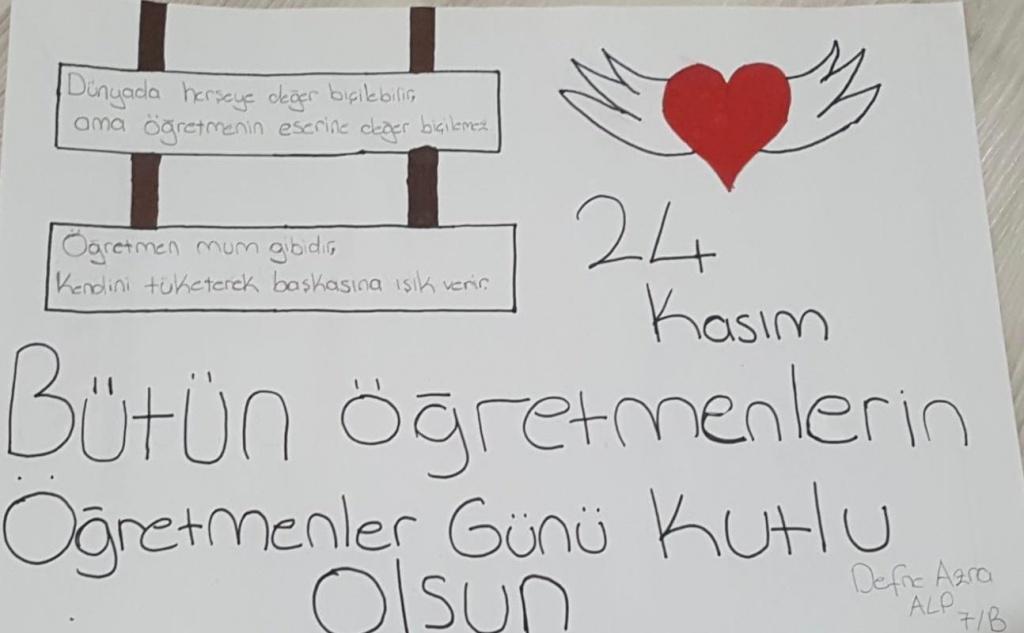 Dünyada herşeye değer biçilebilir,
ama öğretmenin eserine değer biçilemez
Öğretmen mum gibidir,
Kendini tüketerek başkasına ışık verir.
24
Kasım
Bütün öğretmenlerin
Öğretmenler Günü Kutlu
Olsun
Defne Azra
ALP
7/B